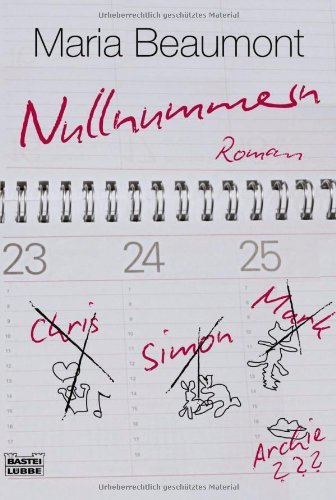 Urheberrechtlich geschütztes Material
Maria Beaumont
Nullnummern
Roman
23 24 25
Chris
Simon
Mark
Archie
???
BASTEI
LÜBBE
Urheberrechtlich geschütztes Material